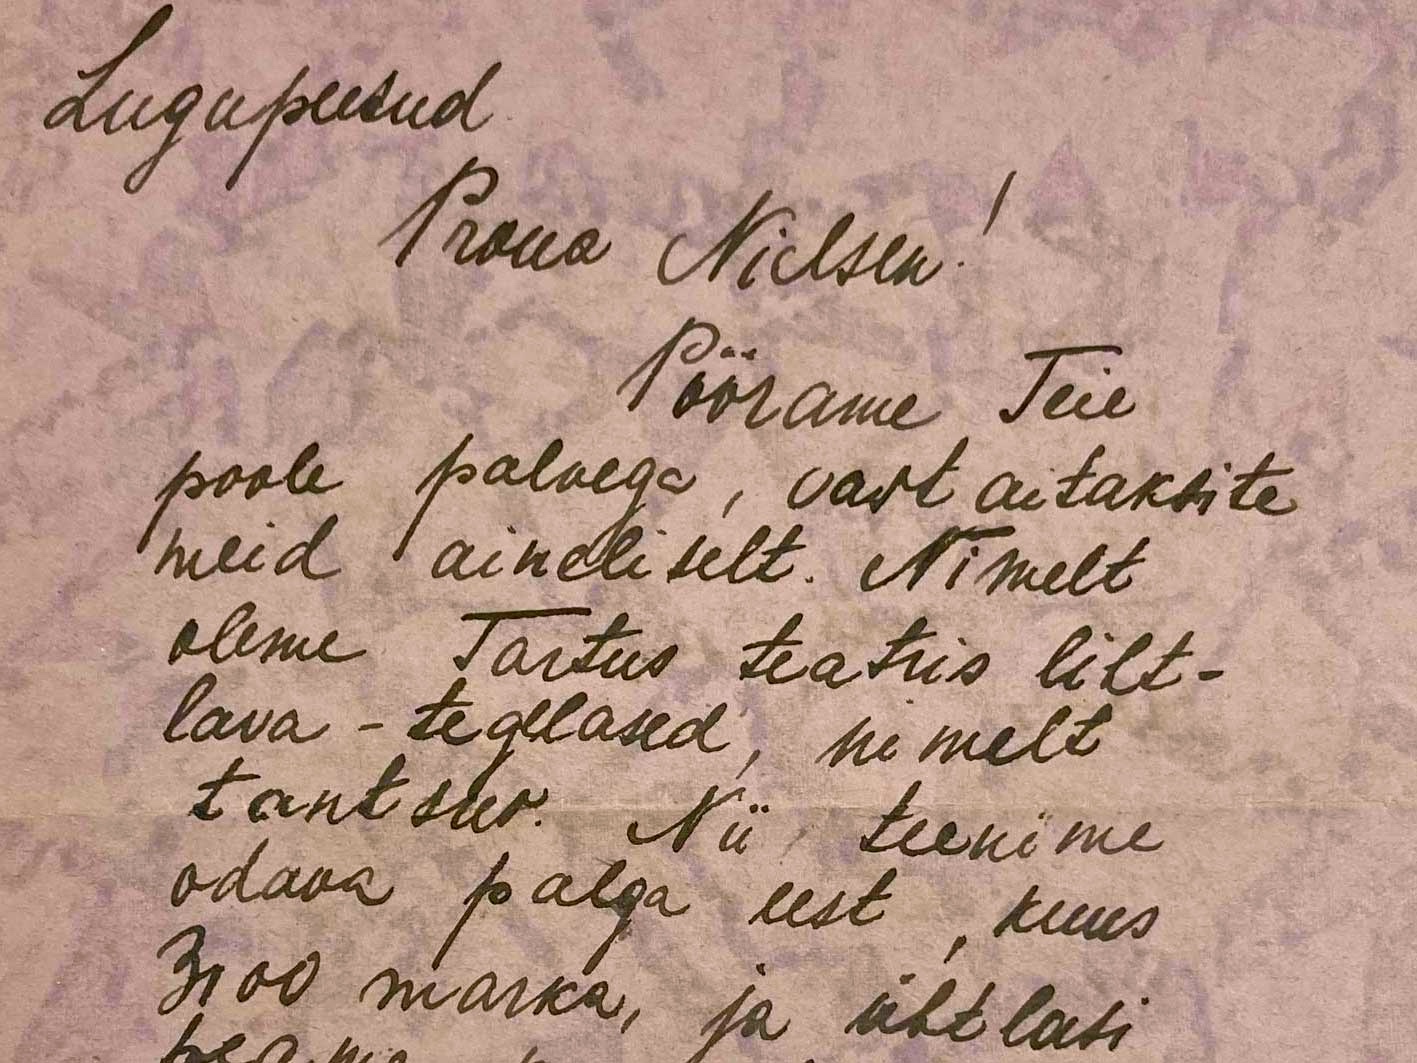 Lugupeetud
Proua Nielsen!
Pöörame Teie
poole palvega, vast aitaksite
meid aineliselt. Nimelt
oleme Tartus teatris liht-
lava-tegelased, nimelt
tantsus. Nii teenime
odava palga eest, kuus
3100 marka, ja ühtlasi
peame